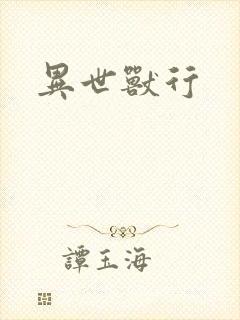 異世獸行
譚玉海